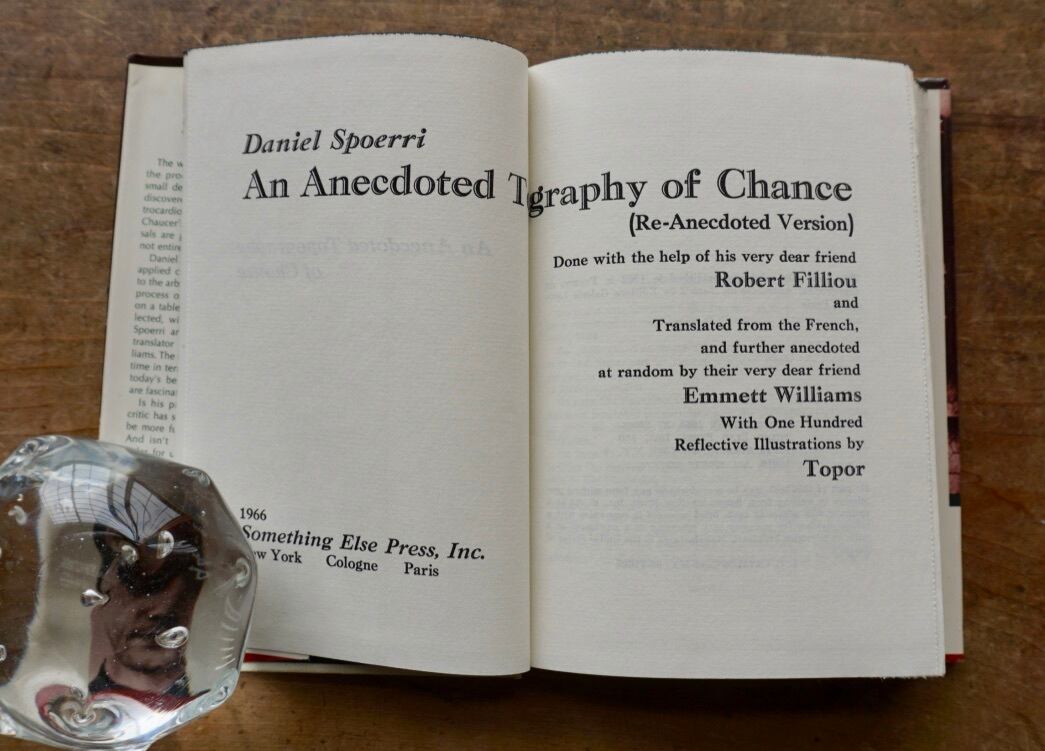 The w
the pro
small de
discover
trocardio
Chaucer'
sals are
not entire
Daniel
applied c
to the arb
process o
on a table
lected, wi
Spoerri ar
translator
liams. The
time in ter
today's be
are fascina
Is his p
critic has s
be more f
And isn't
for
Daniel Spoerri
An Anecdoted T graphy of Chance
(Re-Anecdoted Version)
Done with the help of his very dear friend
Robert Filliou
and
Translated from the French,
and further anecdoted
at random by their very dear friend
Emmett Williams
With One Hundred
Reflective Illustrations by
Topor
1966
Something Else Press, Inc.
ew York Cologne Paris